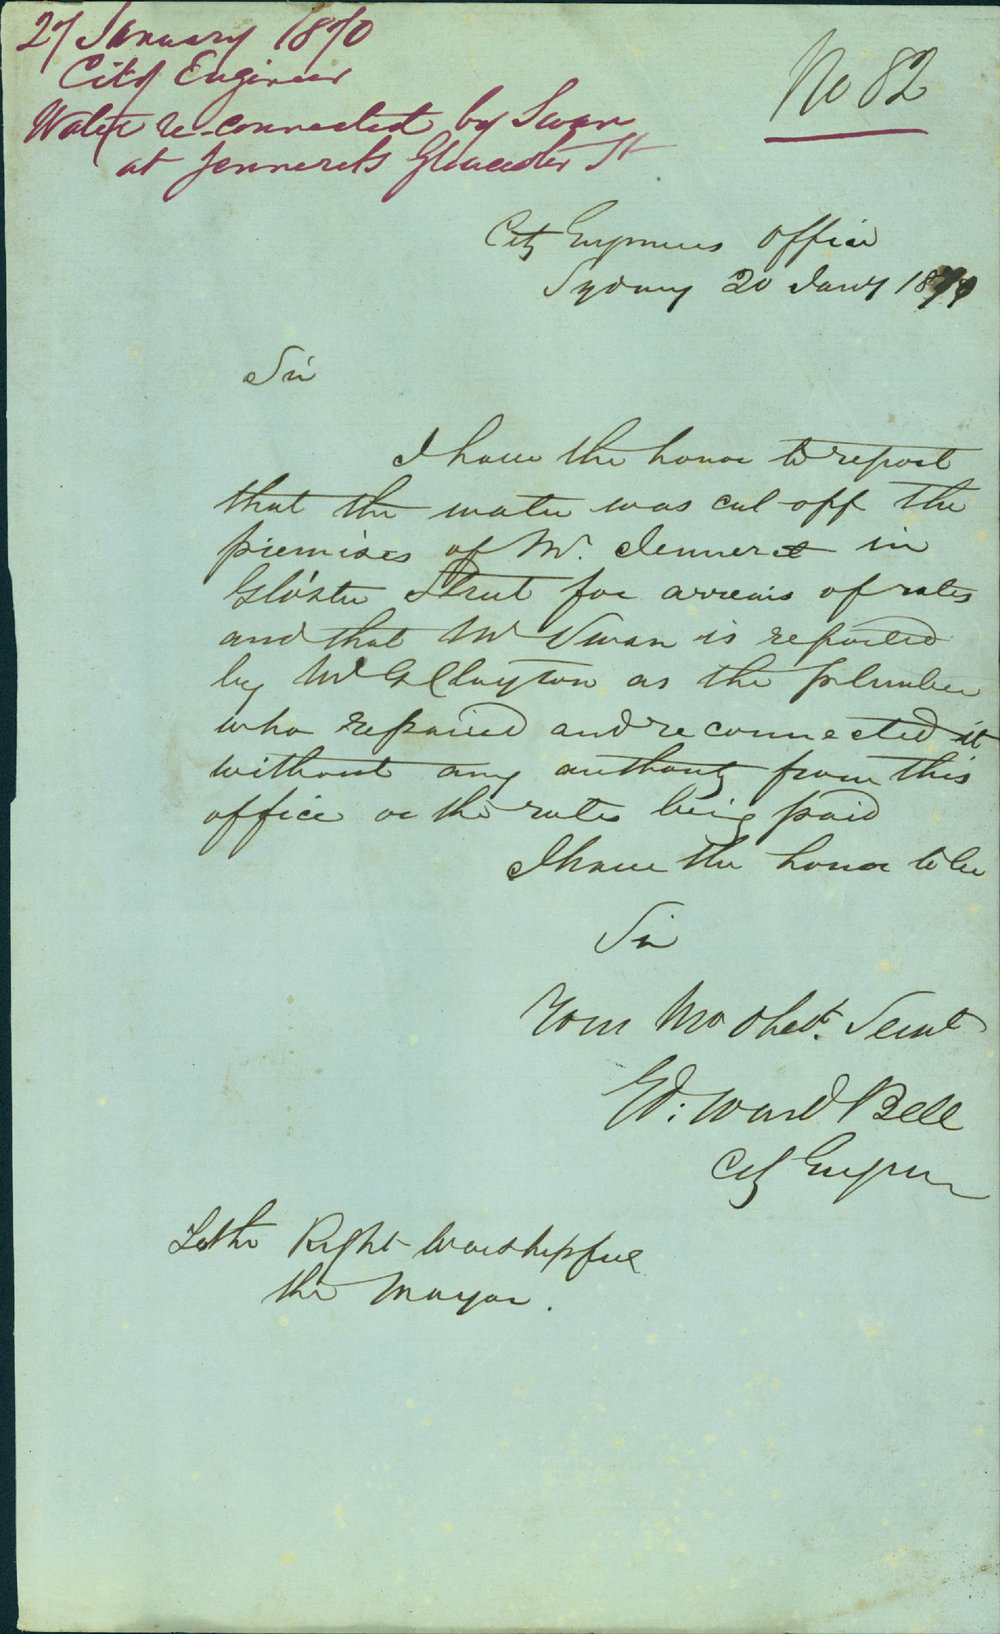 27 January 1870
City Engineer
Water re-connected by Swan
at Jennerets Gloucester St
No 82
City Engineers Office
Sydney 20 Jany 1870
Sir
I have the honor to report
that the water was cut off the
premises of Mr. Jenneret in
Glo'ster Street for arrears of rates
and that Mr Swan is reported
by Mr G Clayton as the plumber
who repaired and reconnected it
without any authority from this
office or the rates being paid
I have the honor to be
Sir
Your Mo Obedt. Servt
Ed: Ward Bell
City Engineer
To the Right Worshipful
the Mayor.